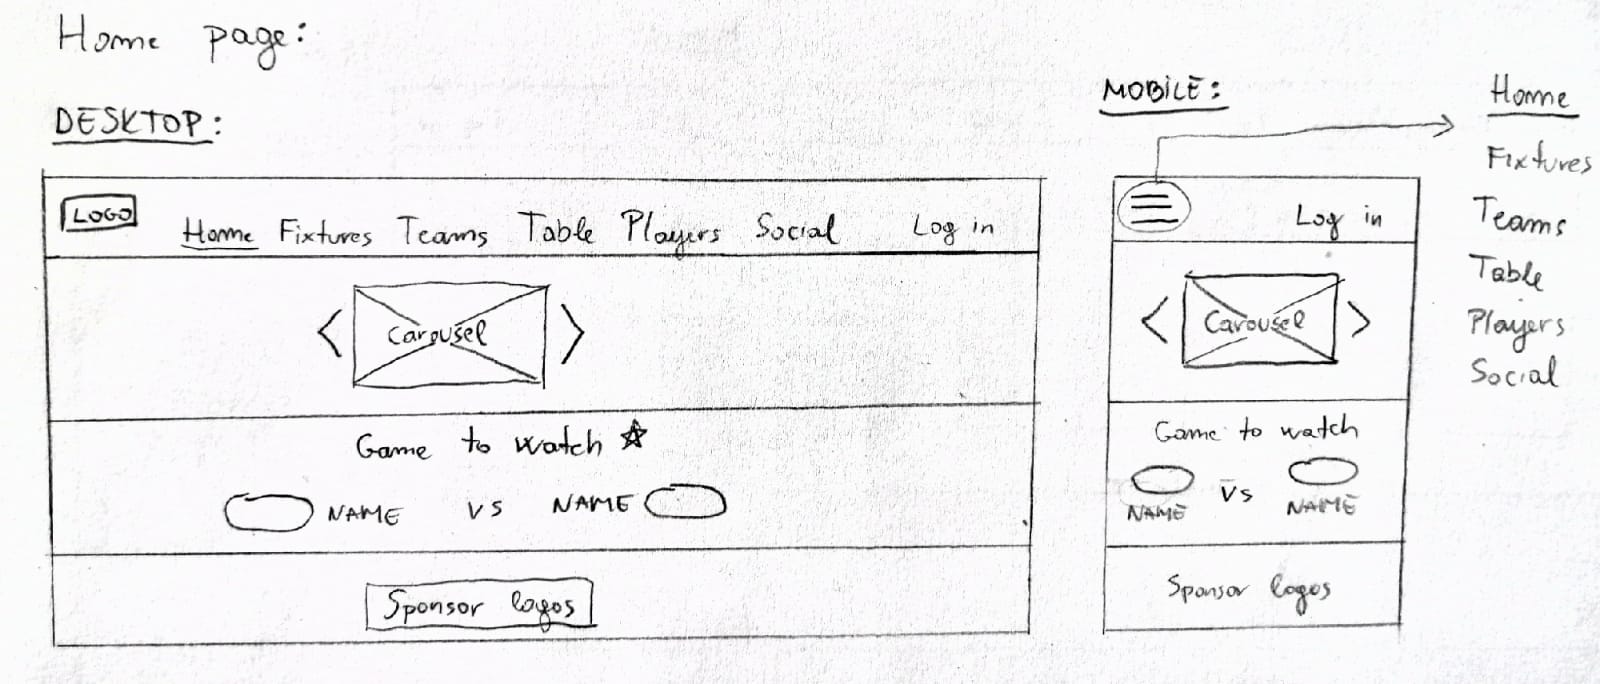 Home page:
DESKTOP:
LOGO Home Fixtures Teams Table Players Social Log in
Carousel
Game to watch
NAME vs NAME
Sponsor logos
MOBILE:
Log in
Carousel
Game to watch
vs
NAME NAME
Sponsor logos
Home
Fixtures
Teams
Table
Players
Social